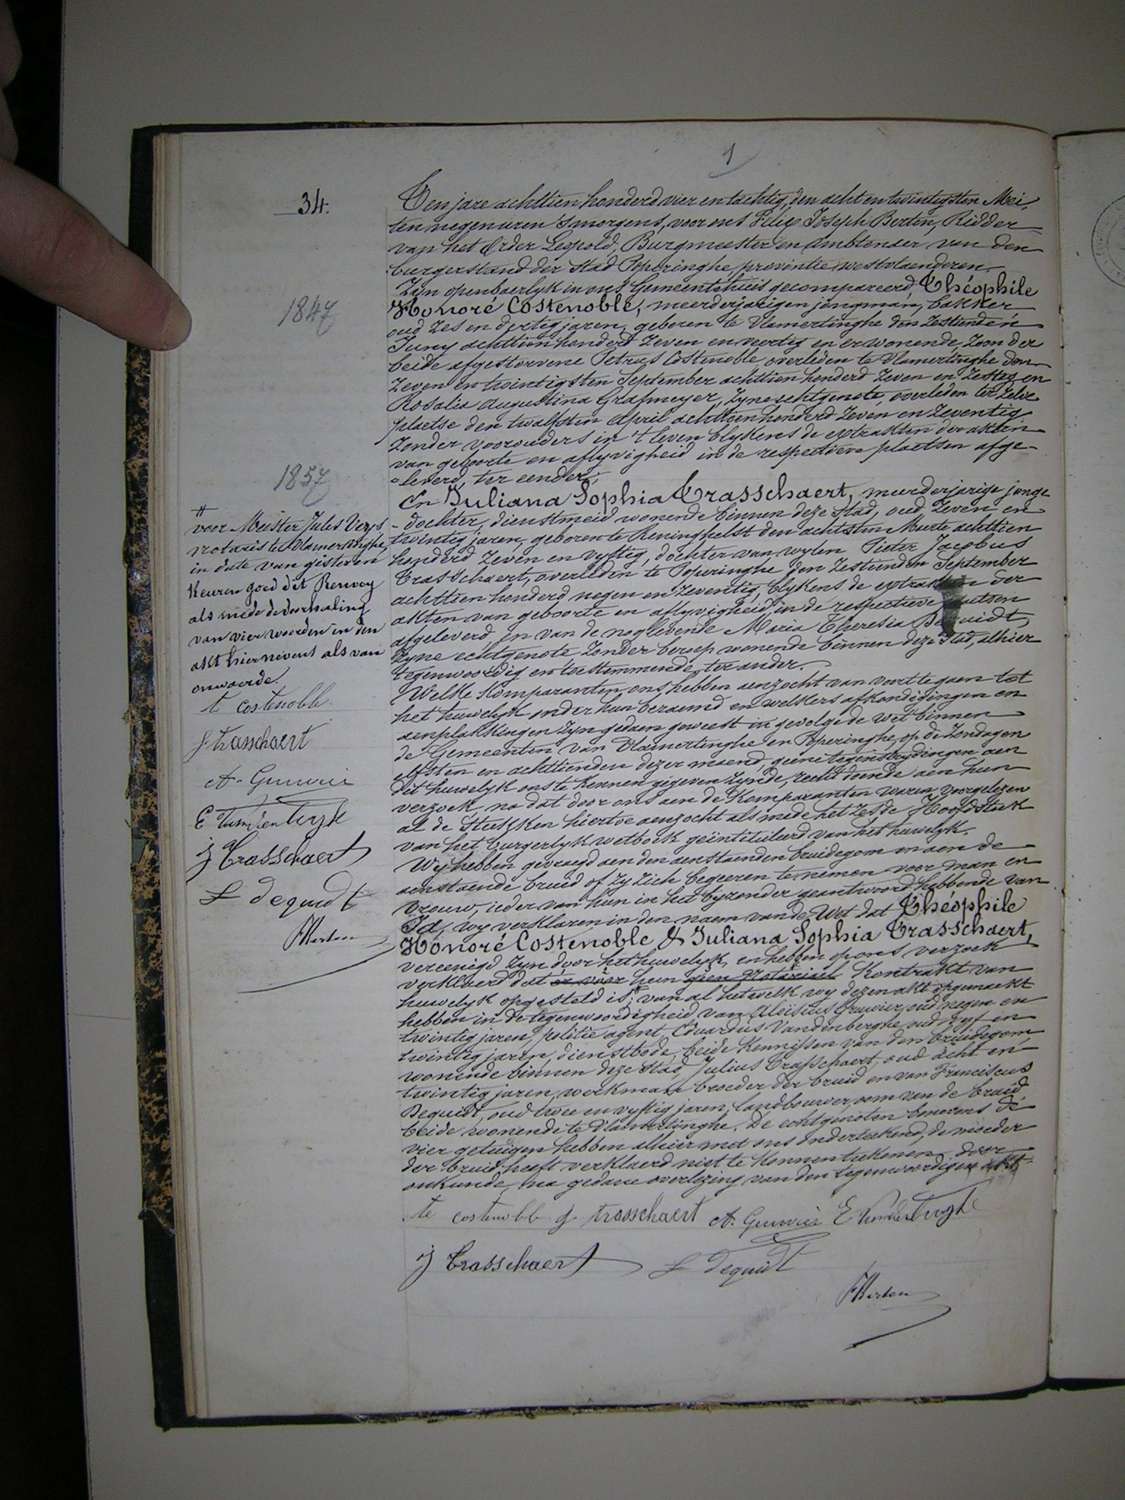 1
34.
Ten jare achttien honderd vier en tachtig, den acht en twintigsten Mei,
ten negen uren 's morgens, voor ons Felix Joseph Berten, Ridder
van het Order Leopold, Burgmeester en Ambtenaer van den
burgerstand der stad Poperinghe, provintie westvlaenderen.
Zyn openbaerlyk in ons Gemeentehuis gecompareerd Théophile
Honoré Costenoble, meerderjarigen jongman, bakker
oud zes en dertig jaren, geboren te Vlamertinghe den zestienden
Juny achttien honderd zeven en veertig en er wonende, zoon der
beide afgestorvene Petrus Costenoble overleden te Vlamertinghe den
zeven en twintigsten September achttien honderd zeven en zestig en
Rosalia Augustina Grapmeyer, zyne echtgenote, overleden ter zelve
plaetse den twalfsten April achttien honderd zeven en zeventig
zonder voorouders in 't leven blykens de extrakten der akten
van geboorte en aflyvigheid in de respective plaetsen afge-
leverd, ter eender,
1847
En Juliana Sophia Trasschaert, meerderjarige jonge
dochter, dienstmeid wonende binnen deze stad, oud zeven en
twintig jaren, geboren te Reninghelst den achtsten Maerte achttien
honderd zeven en vyftig, dochter van wylen Pieter Jacobus
Trasschaert, overleden te Poperinghe den zestienden September
achttien honderd negen en zeventig, blykens de extrakten der
akten van geboorte en aflyvigheid in de respective
afgeleverd, en van de noglevende Maria Theresia
zyne echtgenote zonder beroep wonende binnen deze stad, alhier
tegenwoordig en toestemmende, ter ander.
1857
Welke Komparanten ons hebben aenzocht van voort te gaen tot
het huwelyk onder hun beraemd en welkers afkondigingen en
aenplakkingen zyn gedaen geweest in gevolge de wet binnen
de Gemeenten van Vlamertinghe en Poperinghe, op de zondagen
elfsten en achttienden dezer maend, geene tegenstrydingen aen
dit huwelyk ons te kennen gegeven zynde, recht doende aen hun
verzoek na dat door ons aen de Komparanten waren voorgelezen
al de stukken hiertoe aenzocht als mede het zesde Hoofdstuk
van het burgerlyk wetboek geïntituleerd van het huwelyk.
Wy hebben gevraegd aen den aenstaenden bruidegom en aen de
aenstaende bruid of zy zich begeeren te nemen voor man en
vrouw, ieder van hun in het byzonder geantwoord hebbende van
Ja, wy verklaren in den naem van de Wet dat Théophile
Honoré Costenoble & Juliana Sophia Trasschaert,
vereenigd zyn door het huwelyk, en hebben op ons verzoek
verklaerd dat er voor hun geen Notariael Kontrakt van
huwelyk opgesteld is, van al hetwelk wy dezen akt opgemaekt
hebben in de tegenwoordigheid van Aloïsius Gruwier, oud negen en
twintig jaren, politie agent, Eduardus Vandenberghe, oud vyf en
twintig jaren, dienstbode, beide kennissen van den bruidegom,
wonende binnen deze stad, Julius Trasschaert, oud acht en
twintig jaren, werkman broeder der bruid en van Franciscus
Dequidt, oud twee en vyftig jaren, landbouwer, oom van de bruid
beide wonende te Vlamertinghe. De echtgenoten benevens de
vier getuigen hebben alhier met ons onderteekend, de moeder
der bruid heeft verklaerd niet te konnen teekenen, door
onkunde, na gedane overlezing van den tegenwoordigen akt.
te costenoble J trasschaert A. Gruwier E
J Trasschaert F dequidt
FBerten
# voor Meester Jules Veys
notaris te Vlamertinghe,
in date van gisteren
Keuren goed dit Renvooy
als mede de doorhaling
van vier woorden in den
akt hiernevens als van
onwaerde.
t costenoble
J trasschaert
A. Gruwier
E
J Trasschaert
F dequidt
FBerten